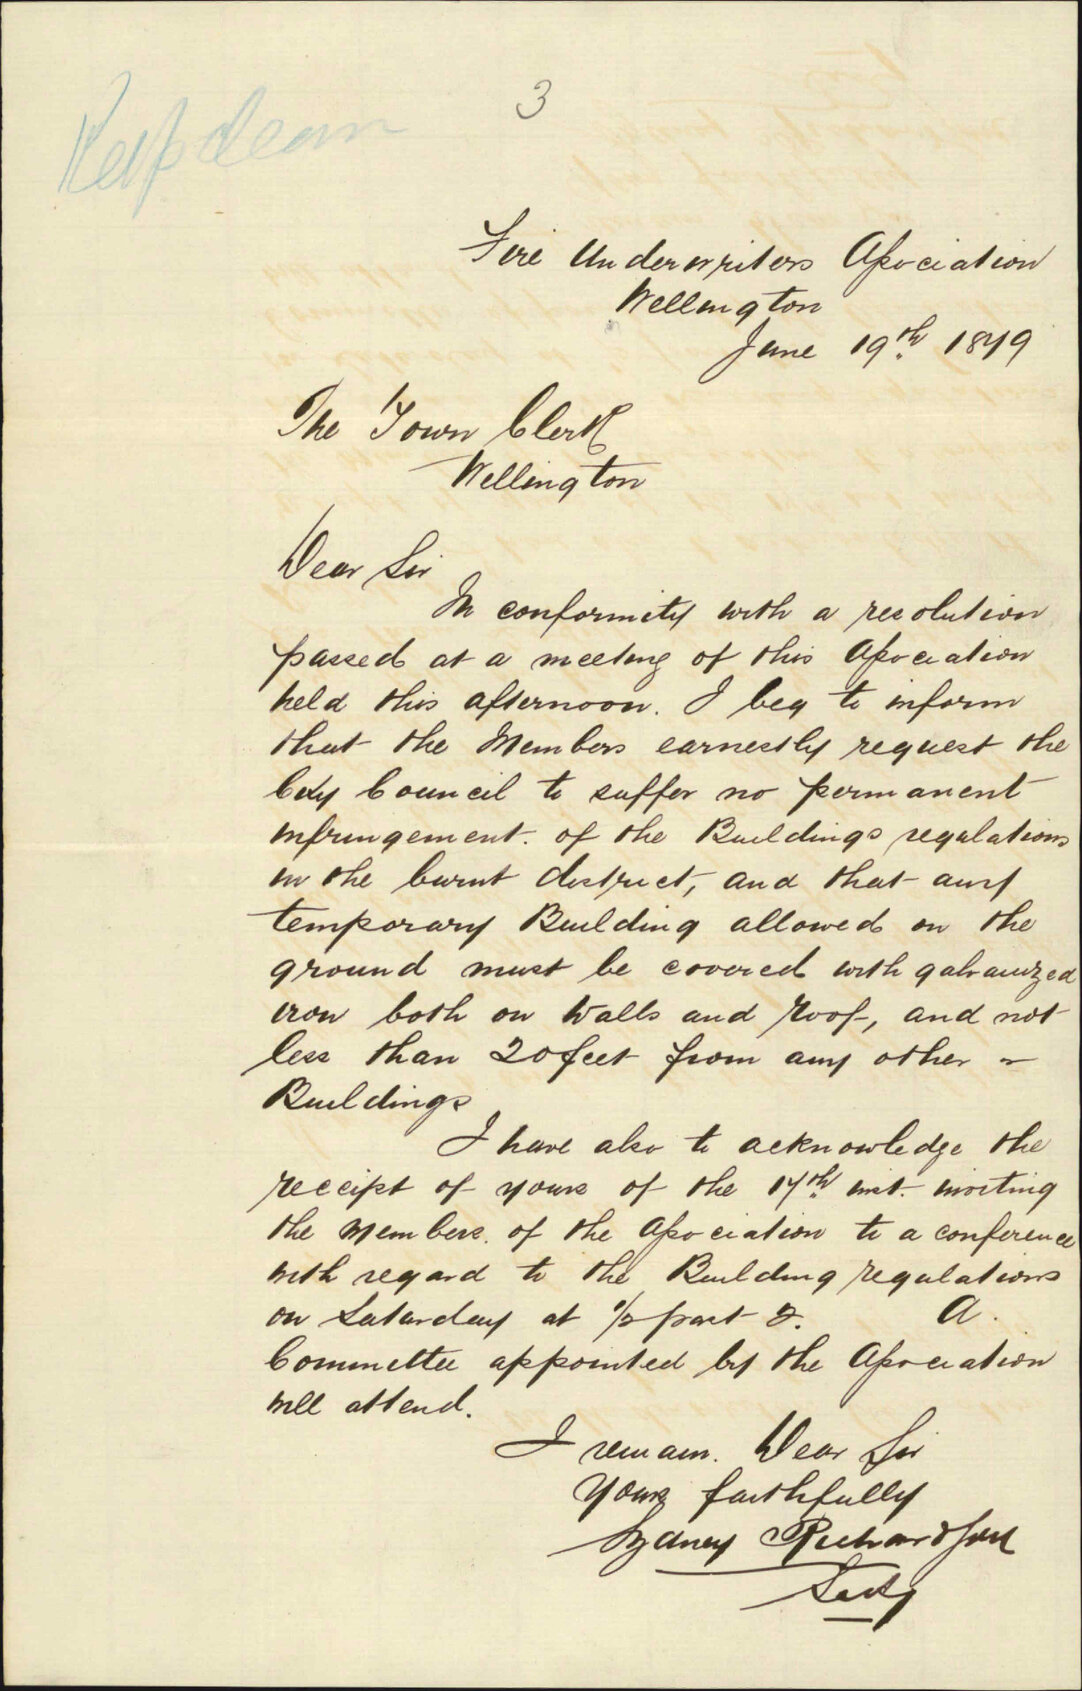 3
Fire Underwriters Association
Wellington
June 19th 1879
The Town Clerk
Wellington
Dear Sir
In conformity with a resolution
passed at a meeting of this Association
held this afternoon. I beg to inform
that the Members earnestly request the
City Council to suffer no permanent
infringement. of the Buildings regulations
in the burnt district, and that any
temporary Building allowed on the
ground must be covered with galvanized
iron both on walls and roof, and not
less than 20 feet from any other
Buildings
I have also to acknowledge the
receipt of yours of the 17th inst. inviting
the Members. of the Association to a conference
with regard to the Building regulations
on Saturday at 1/2 past 2. A.
Committee appointed by the Association
will attend.
I remain. Dear Sir
Yours faithfully
Sydney Richardson
Secty